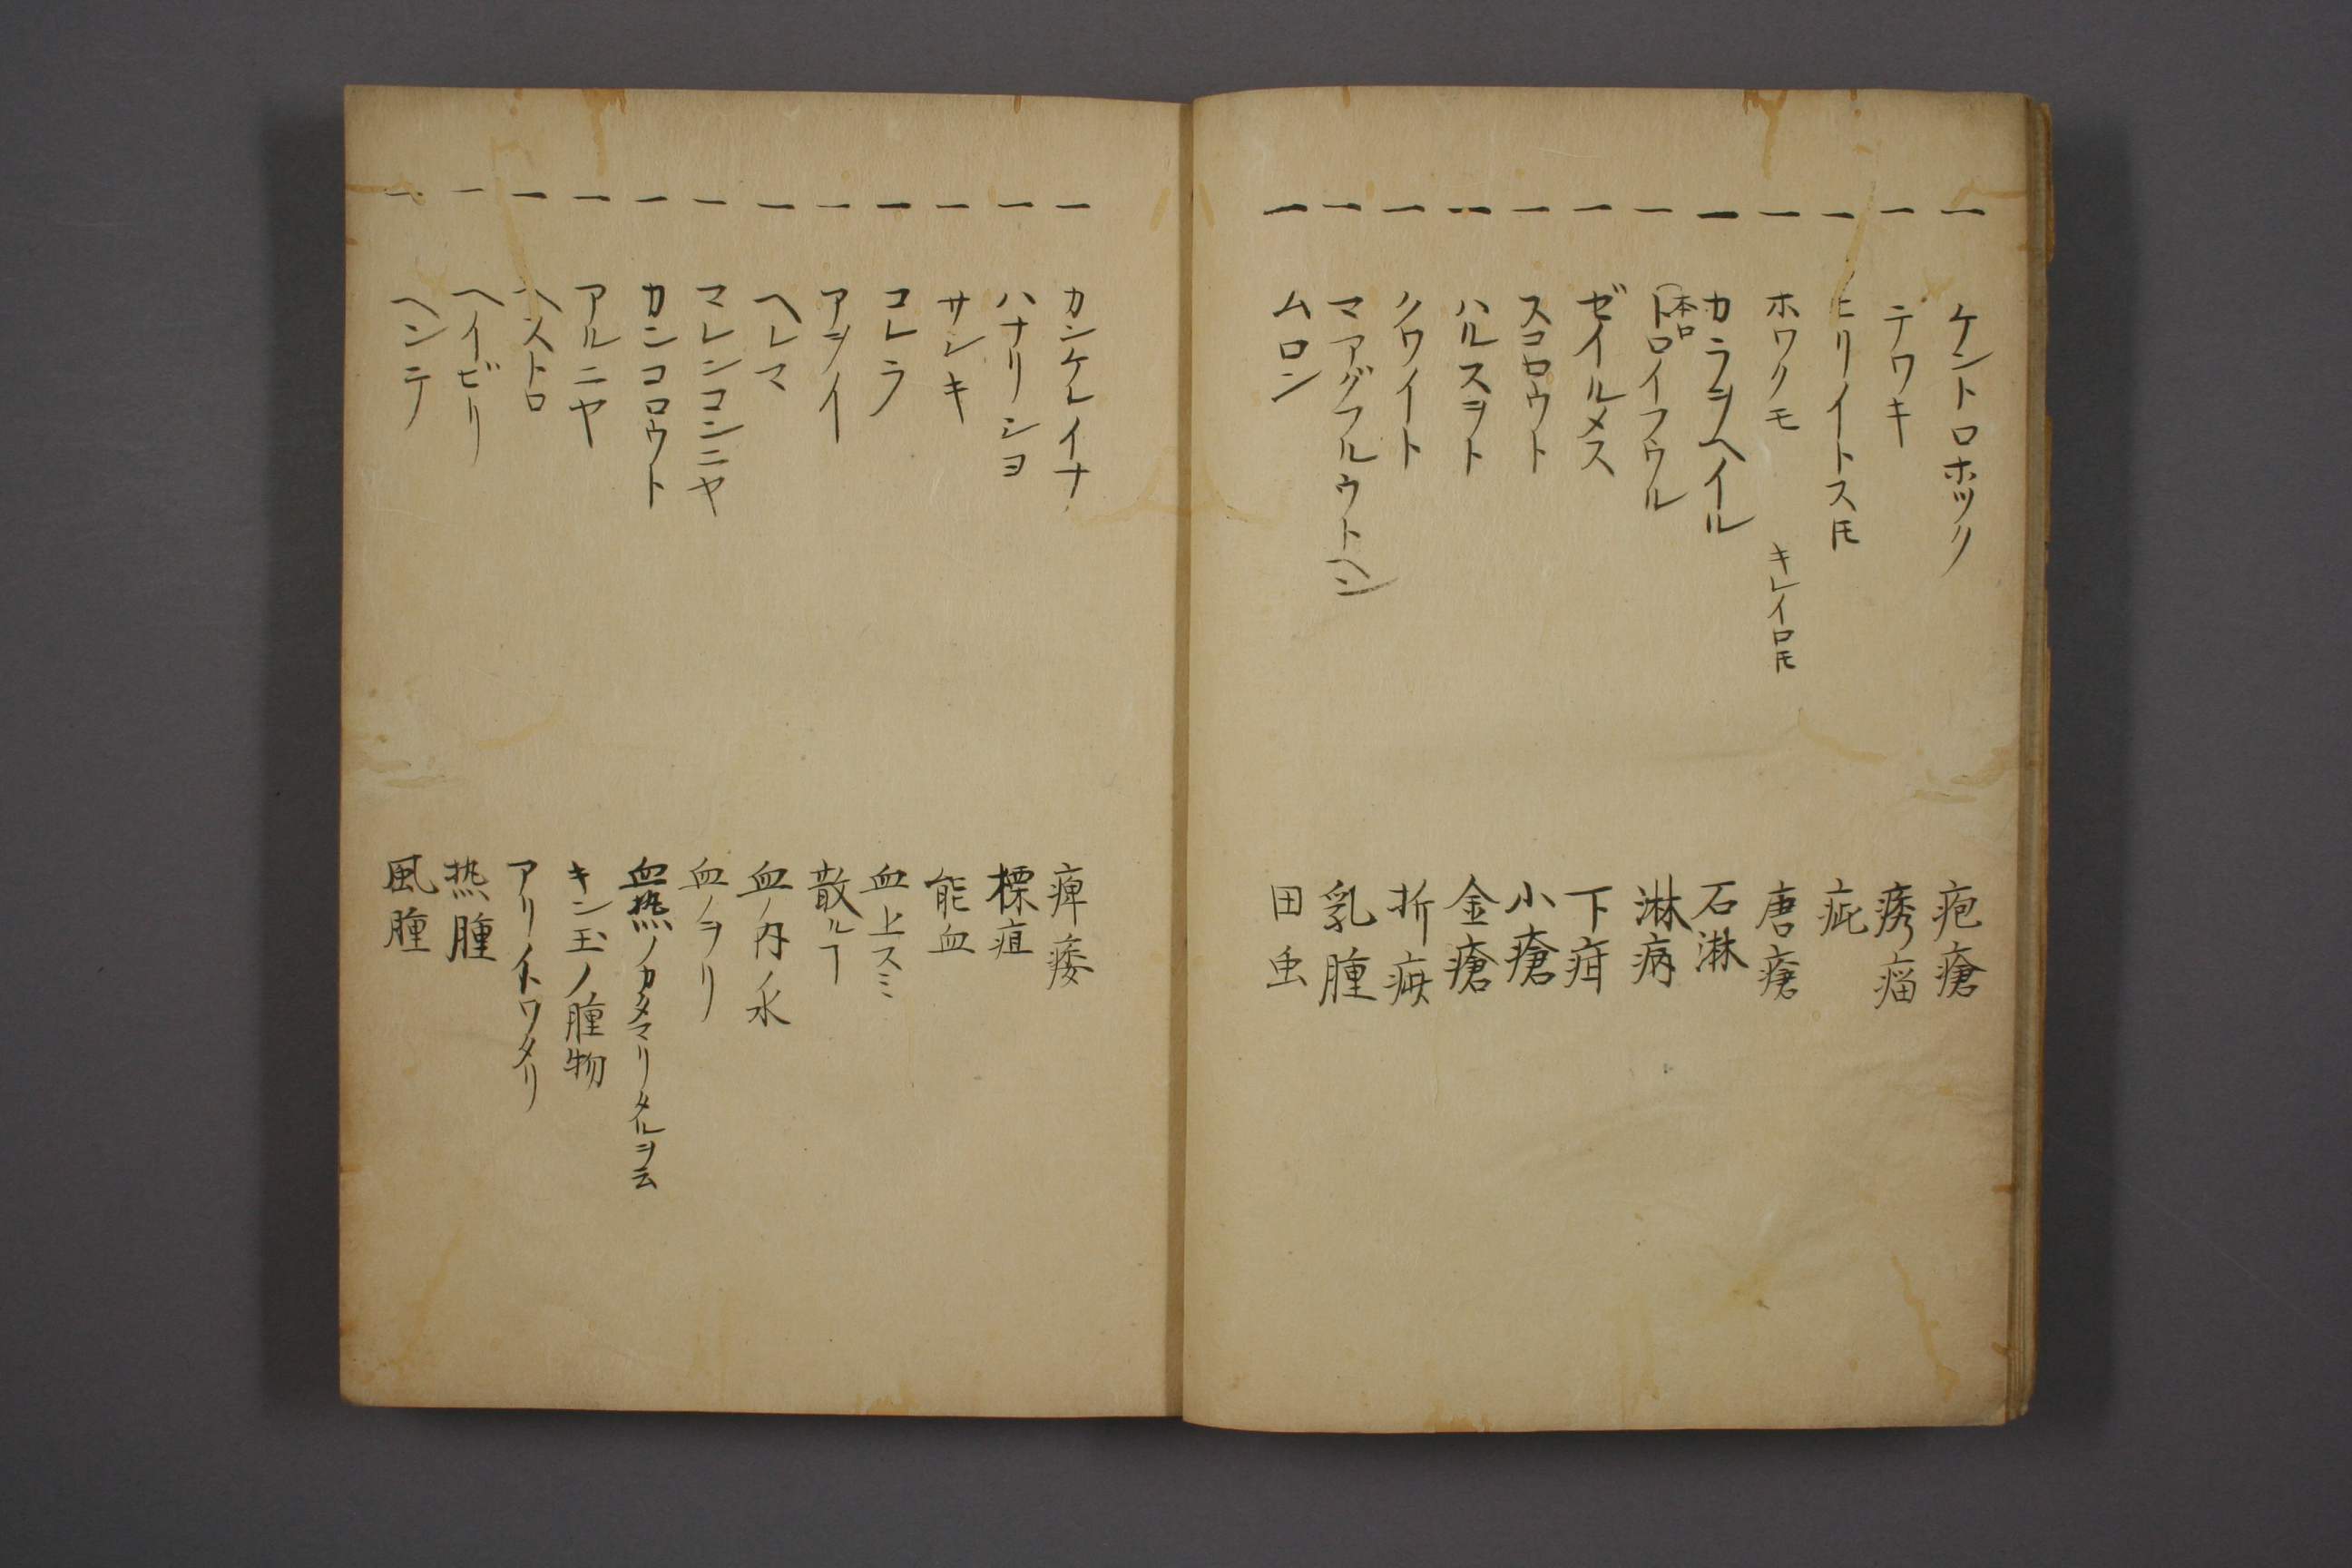 一 ケントロホツク 疱瘡
一 テワキ 瘤
一 ヒリイトスモ 疵
一 ホワクモ キレイロモ 唐瘡
一 カラヲヘイル 石淋
一 トロイフウル (本ロ 淋病
一 ゼイルメス 下疳
一 スコロウト 小瘡
一 ハルスヲト 金瘡
一 クワイト 折
一 マアグフルウトヘン 乳腫
一 ムロン 田虫
一 カンケレイナ 痺痿
一 ハナリシヨ 瘭疽
一 サンキ 能血
一 コレラ 血上スミ
一 アヲイ 散ルヿ
一 ヘレマ 血ノ内ノ水
一 マレンコンニヤ 血ノヲリ
一 カンコロウト 血熱ノカタマリタルヲ云
一 アルニヤ キン玉ノ腫物
一 ヘストロ アリノイトワタリ
一 ヘイビリ 熱腫
一 ヘンテ 風腫